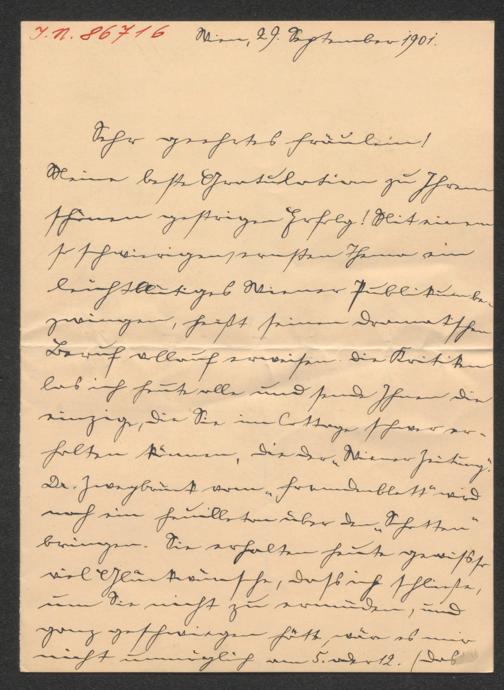 J.N. 86716
Wien, 29. September 1901.
Sehr geehrtes Fräulein!
Meine beste Gratulation zu Ihrem
schönen gestrigen Erfolg! Mit einem
so schwierigen, ernsten Thema ein
leichtblütiges Wiener Publikum be-
zwingen, heißt seinen dramatischen
Beruf vollauf erweisen. Die Kritiken
las ich heute alle und sende Ihnen die
einzige, die Sie im Cottage schwer er-
halten können, die der „Wiener Zeitung".
Dr. Zweybrück vom „Fremdenblatt" wird
noch ein Feuilleton über den „Schatten"
bringen. Sie erhalten heute gewiss so
viel Glückwünsche, dass ich schließe,
um Sie nicht zu ermüden, und
ganz geschwiegen hätte, wär es mir
nicht unmöglich am 5. oder 12. (das